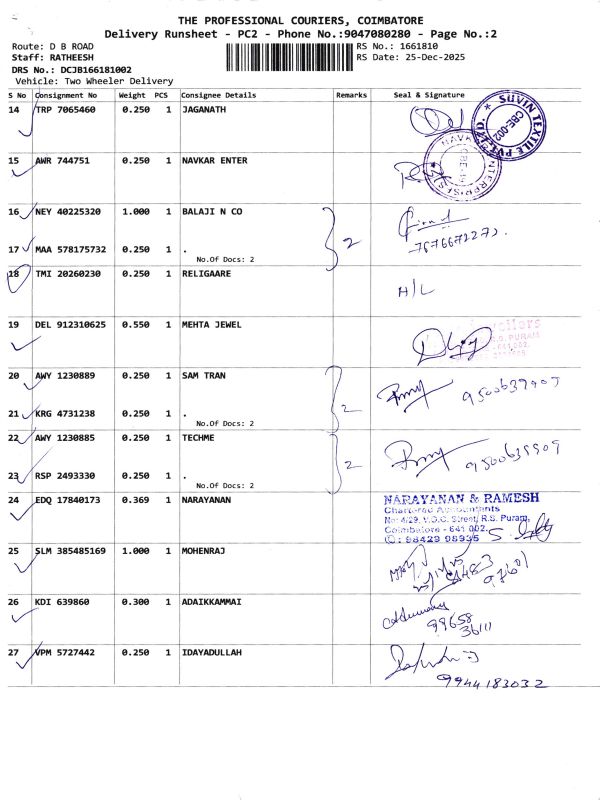 THE PROFESSIONAL COURIERS, COIMBATORE
Delivery Runsheet - PC2 - Phone No.:9047080280 - Page No.:2
Route: D B ROAD
RS No.: 1661810
Staff: RATHEESH
RS Date: 25-Dec-2025
DRS No.: DCJB166181002
Vehicle: Two Wheeler Delivery
S No Consignment No Weight PCS Consignee Details Remarks Seal & Signature
14 TRP 7065460 0.250 1 JAGANATH
SUVIN TEXTILE PVT. LTD.
CBE-002
15 AWR 744751 0.250 1 NAVKAR ENTER
16 NEY 40225320 1.000 1 BALAJI N CO
2
7676672272.
17 MAA 578175732 0.250 1 .
No.Of Docs: 2
18 TMI 20260230 0.250 1 RELIGAARE
H/L
19 DEL 912310625 0.550 1 MEHTA JEWEL
20 AWY 1230889 0.250 1 SAM TRAN
2
21 KRG 4731238 0.250 1 .
No.Of Docs: 2
22 AWY 1230885 0.250 1 TECHME
2
23 RSP 2493330 0.250 1 .
No.Of Docs: 2
24 EDQ 17840173 0.369 1 NARAYANAN
NARAYANAN & RAMESH
Chartered Accountants
No: 4/29, V.O.C. Street, R.S. Puram,
Coimbatore - 641 002.
✆: 98429 98935
25 SLM 385485169 1.000 1 MOHENRAJ
26 KDI 639860 0.300 1 ADAIKKAMMAI
99658
36111
27 VPM 5727442 0.250 1 IDAYADULLAH
9944183032